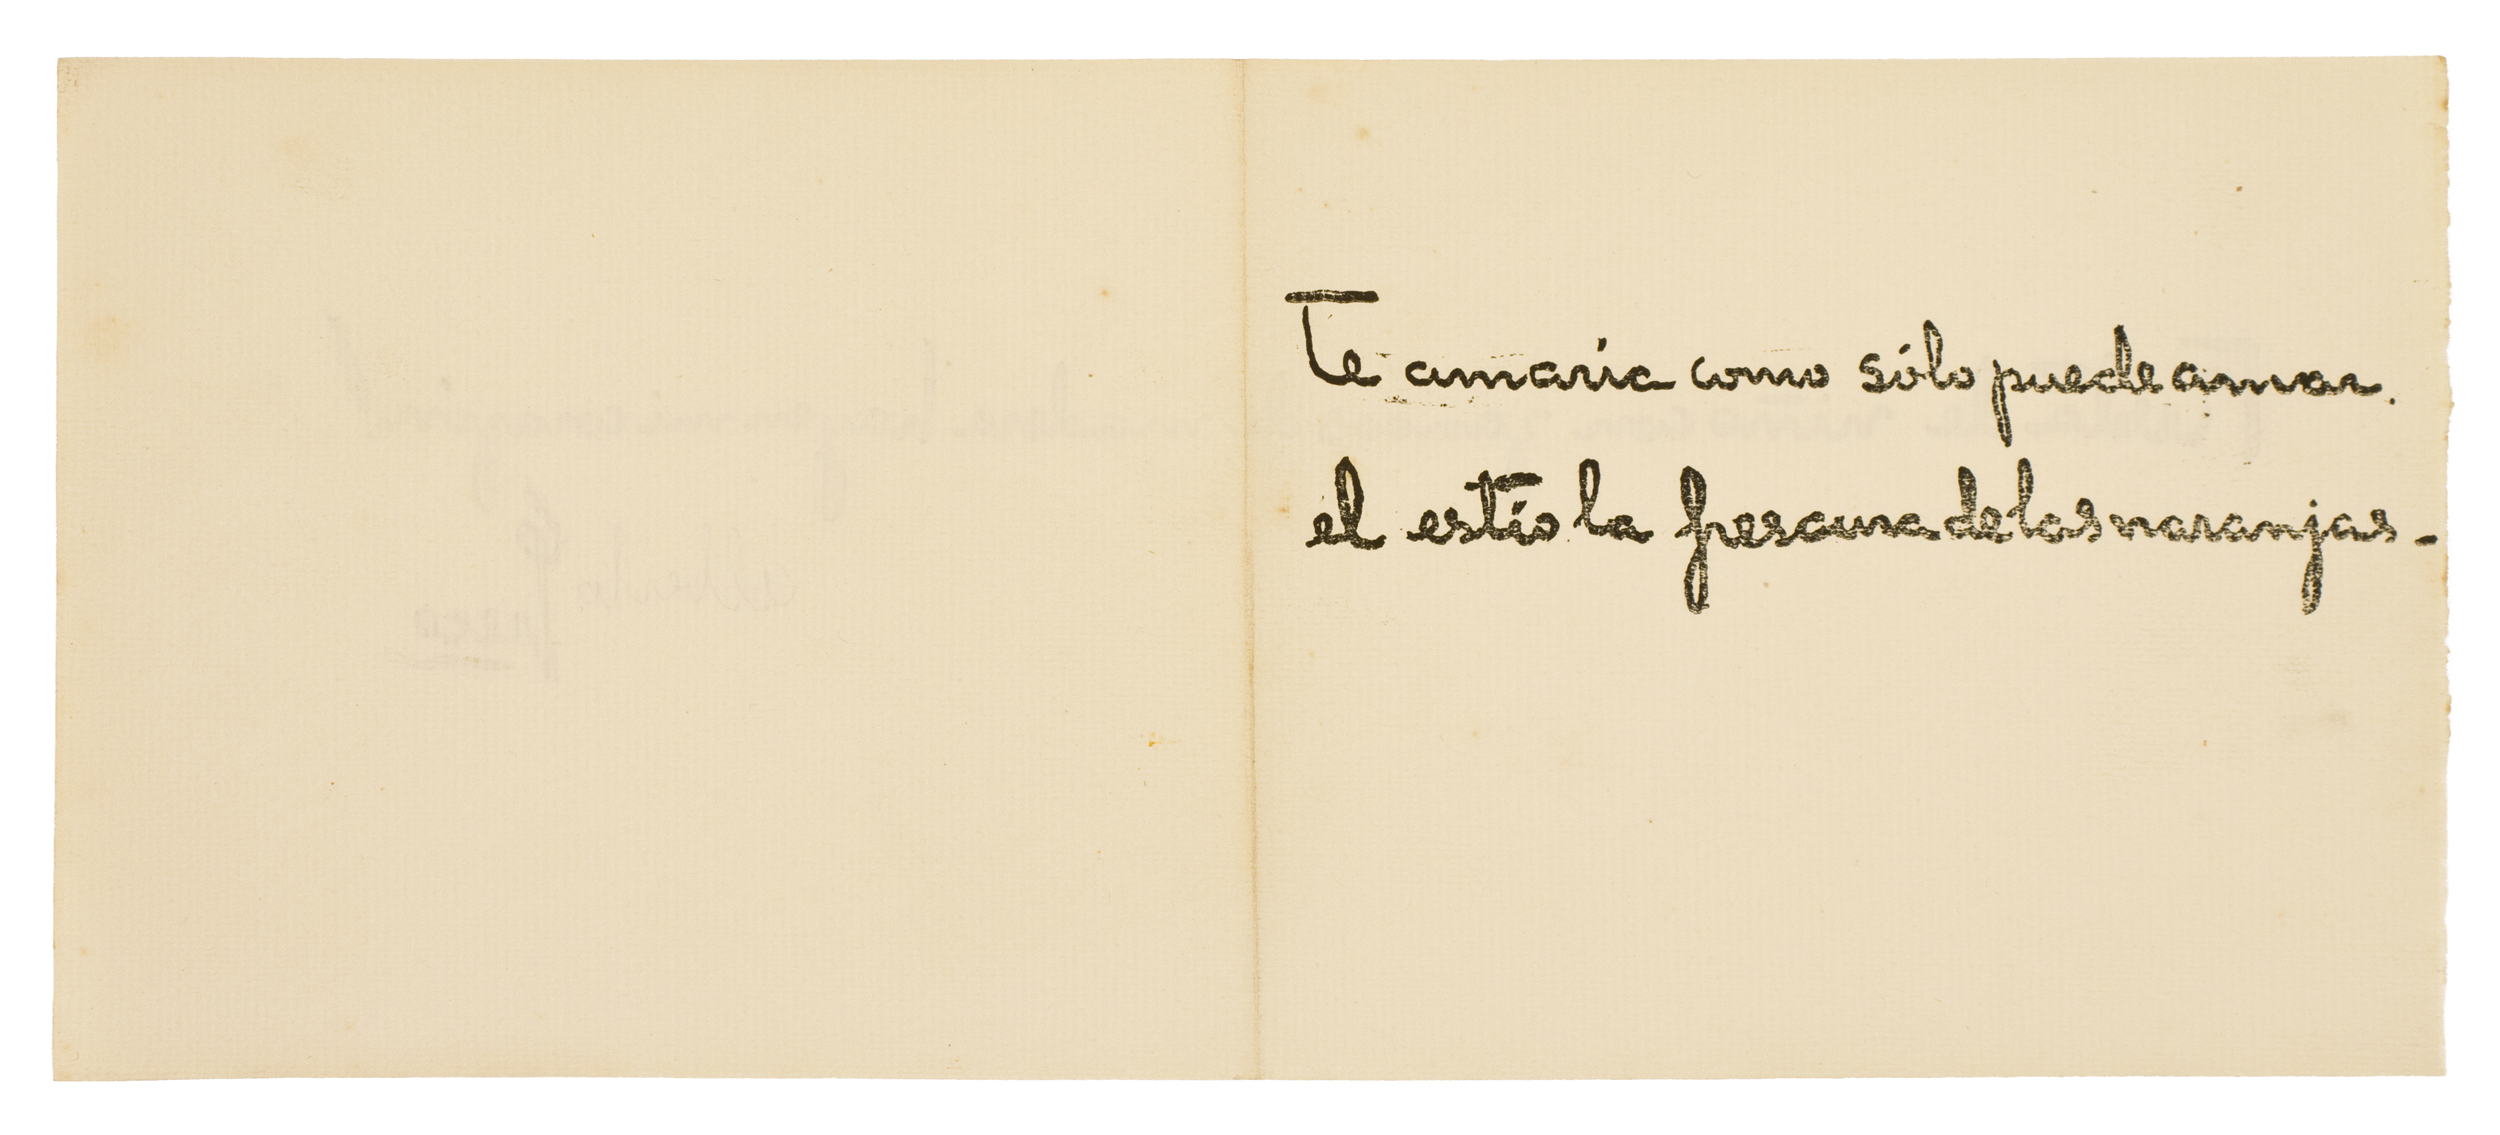 Te amaría como sólo puede amar.
el estío la frescura de las naranjas-